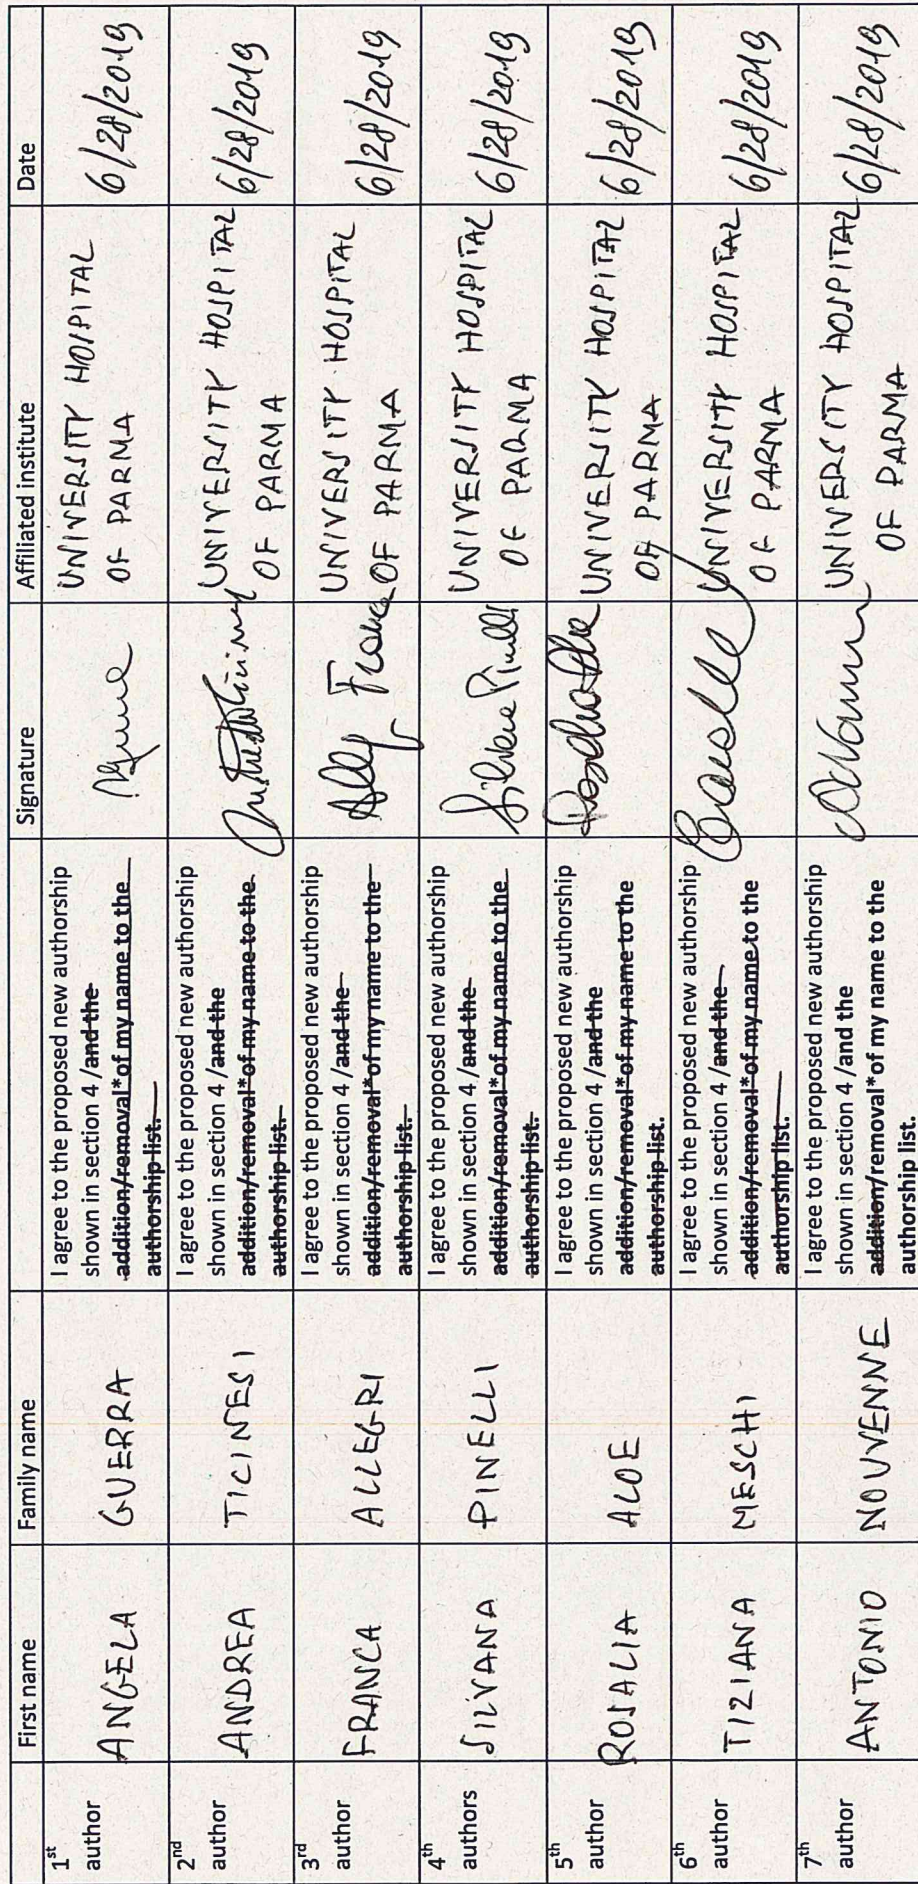 First name Family name Signature Affiliated institute Date
1st author ANGELA GUERRA I agree to the proposed new authorship shown in section 4 /and the addition/removal*of my name to the authorship list. UNIVERSITY HOSPITAL OF PARMA 6/28/2019
2nd author ANDREA TICINESI I agree to the proposed new authorship shown in section 4 /and the addition/removal*of my name to the authorship list. UNIVERSITY HOSPITAL OF PARMA 6/28/2019
3rd author FRANCA ALLEGRI I agree to the proposed new authorship shown in section 4 /and the addition/removal*of my name to the authorship list. Franca UNIVERSITY HOSPITAL OF PARMA 6/28/2019
4th authors SILVANA PINELLI I agree to the proposed new authorship shown in section 4 /and the addition/removal*of my name to the authorship list. Silvana Pinelli UNIVERSITY HOSPITAL OF PARMA 6/28/2019
5th author ROSALIA ALOE I agree to the proposed new authorship shown in section 4 /and the addition/removal*of my name to the authorship list. UNIVERSITY HOSPITAL OF PARMA 6/28/2019
6th author TIZIANA MESCHI I agree to the proposed new authorship shown in section 4 /and the addition/removal*of my name to the authorship list. UNIVERSITY HOSPITAL OF PARMA 6/28/2019
7th author ANTONIO NOUVENNE I agree to the proposed new authorship shown in section 4 /and the addition/removal*of my name to the authorship list. UNIVERSITY HOSPITAL OF PARMA 6/28/2019